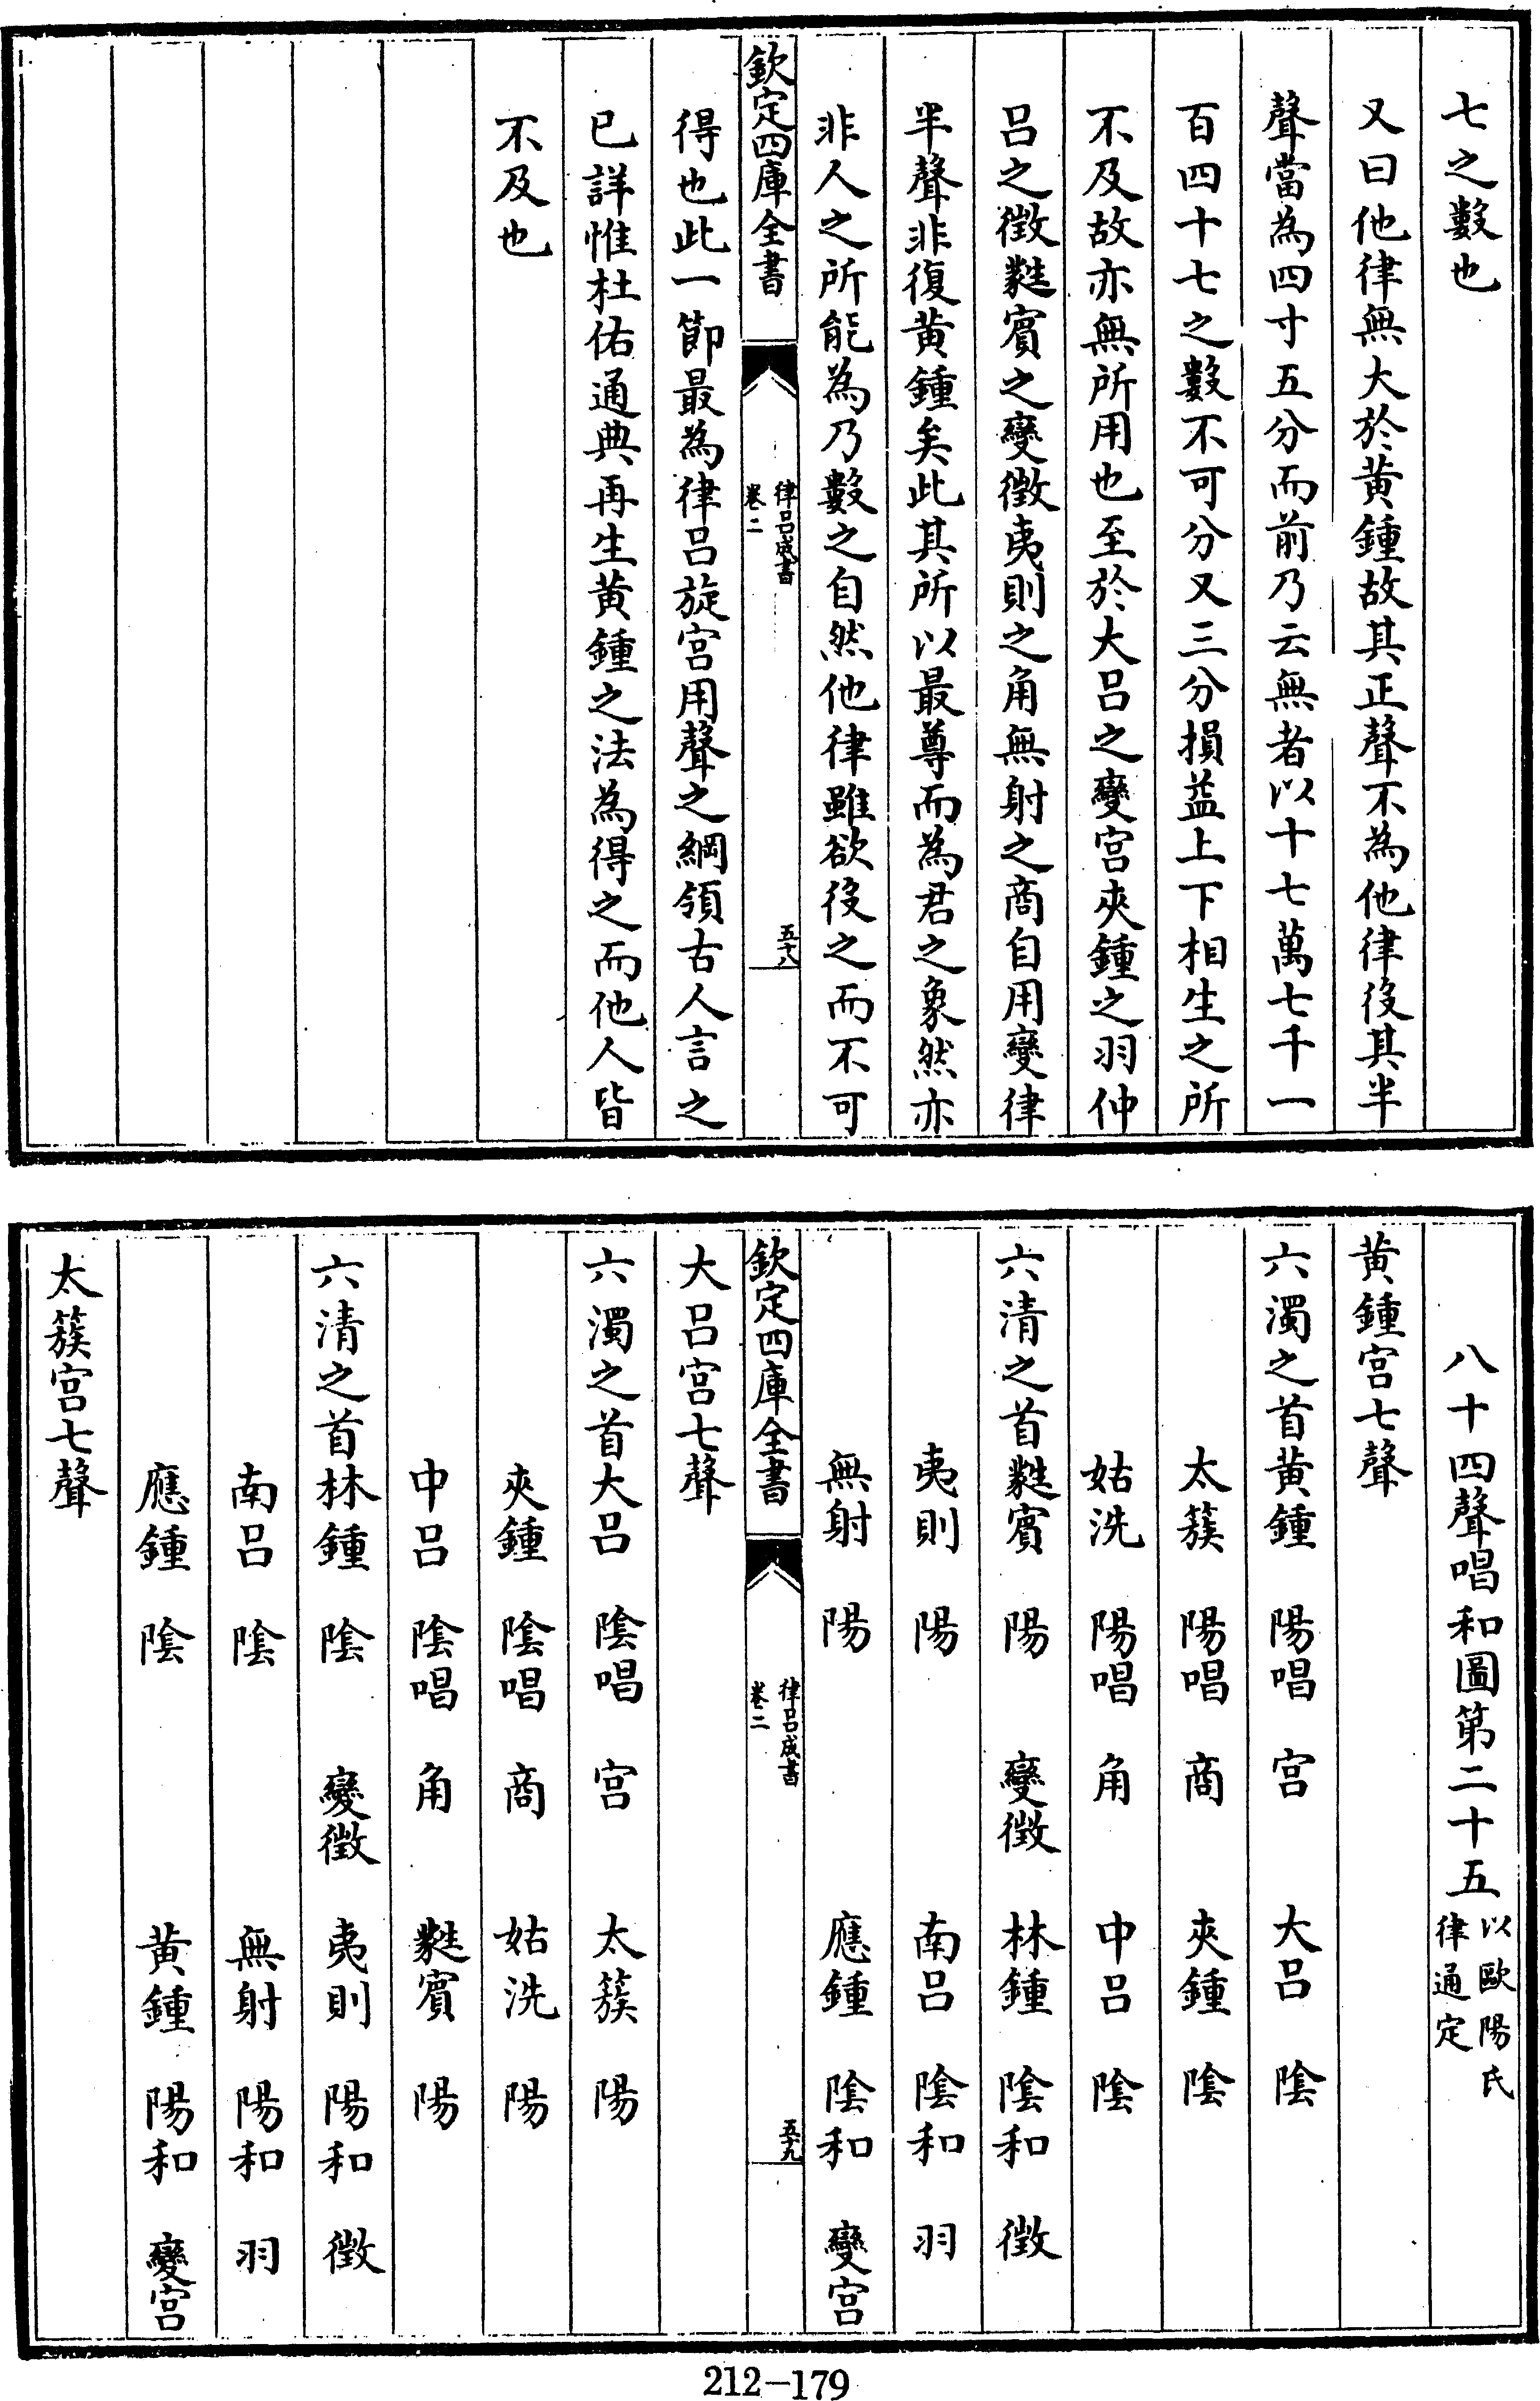 七之數也
又曰他律無大於黄鍾故其正聲不為他律役其半
聲當為四寸五分而前乃云無者以十七萬七千一
百四十七之數不可分又三分損益上下相生之所
不及故亦無所用也至於大呂之變宮夾鍾之羽仲
呂之徵蕤賓之變徵夷則之角無射之商自用變律
半聲非復黄鍾矣此其所以最尊而為君之象然亦
非人之所能為乃數之自然他律雖欲役之而不可
欽定四庫全書
律呂成書
卷二
五十八
得也此一節最為律呂旋宮用聲之綱領古人言之
已詳惟杜佑通典再生黄鍾之法為得之而他人皆
不及也
八十四聲唱和圖第二十五
以歐陽氏
律通定
黄鍾宮七聲
六濁之首黄鍾 陽唱 宮 大呂 陰
太簇 陽唱 商 夾鍾 陰
姑洗 陽唱 角 中呂 陰
六清之首蕤賓 陽 變徵 林鍾 陰和 徵
夷則 陽 南呂 陰和 羽
無射 陽 應鍾 陰和 變宮
欽定四庫全書
律呂成書
卷二
五十九
大呂宮七聲
六濁之首大呂 陰唱 宮 太簇 陽
夾鍾 陰唱 商 姑洗 陽
中呂 陰唱 角 蕤賓 陽
六清之首林鍾 陰 變徵 夷則 陽和 徵
南呂 陰 無射 陽和 羽
應鍾 陰 黄鍾 陽和 變宮
太簇宮七聲
212-179